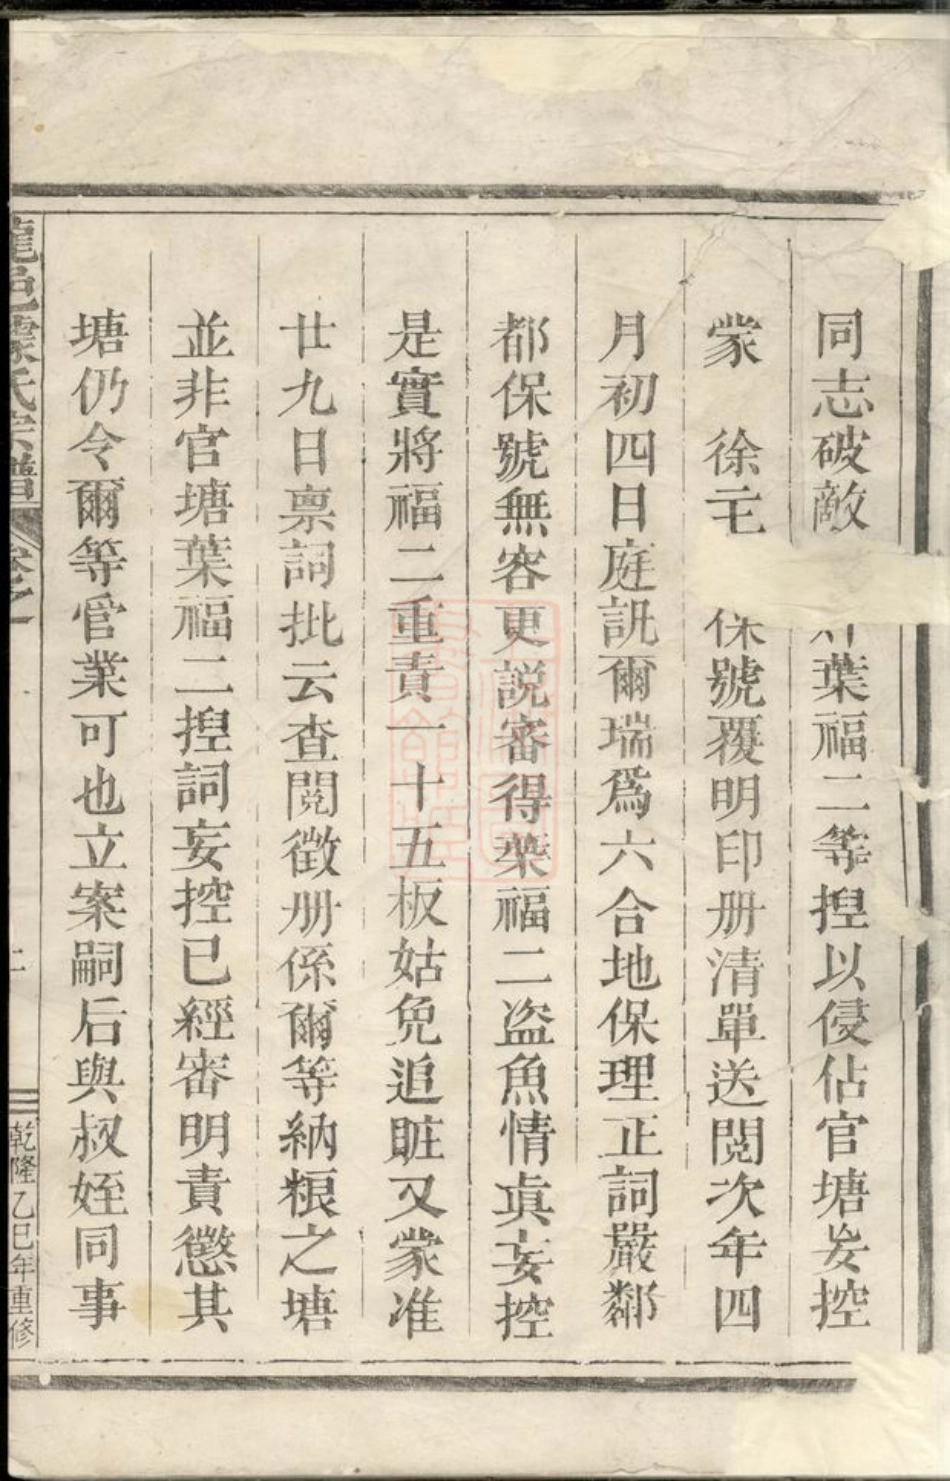 同志破敵葉福二等揑以侵佔官塘妄控
蒙　徐保號覆明印册清單送閱次年四
月初四日庭訊爾瑞爲六合地保理正詞嚴鄰
都保號無容更説審得葉福二盜魚情真妄控
是實將福二重責一十五板姑免追賍又蒙准
廿九日禀詞批云查閱徵册係爾等納粮之塘
並非官塘葉福二揑詞妄控已經審明責懲其
塘仍令爾等管業可也立案嗣后與叔姪同事
氏宗譜　卷之一
乾隆乙巳年重修